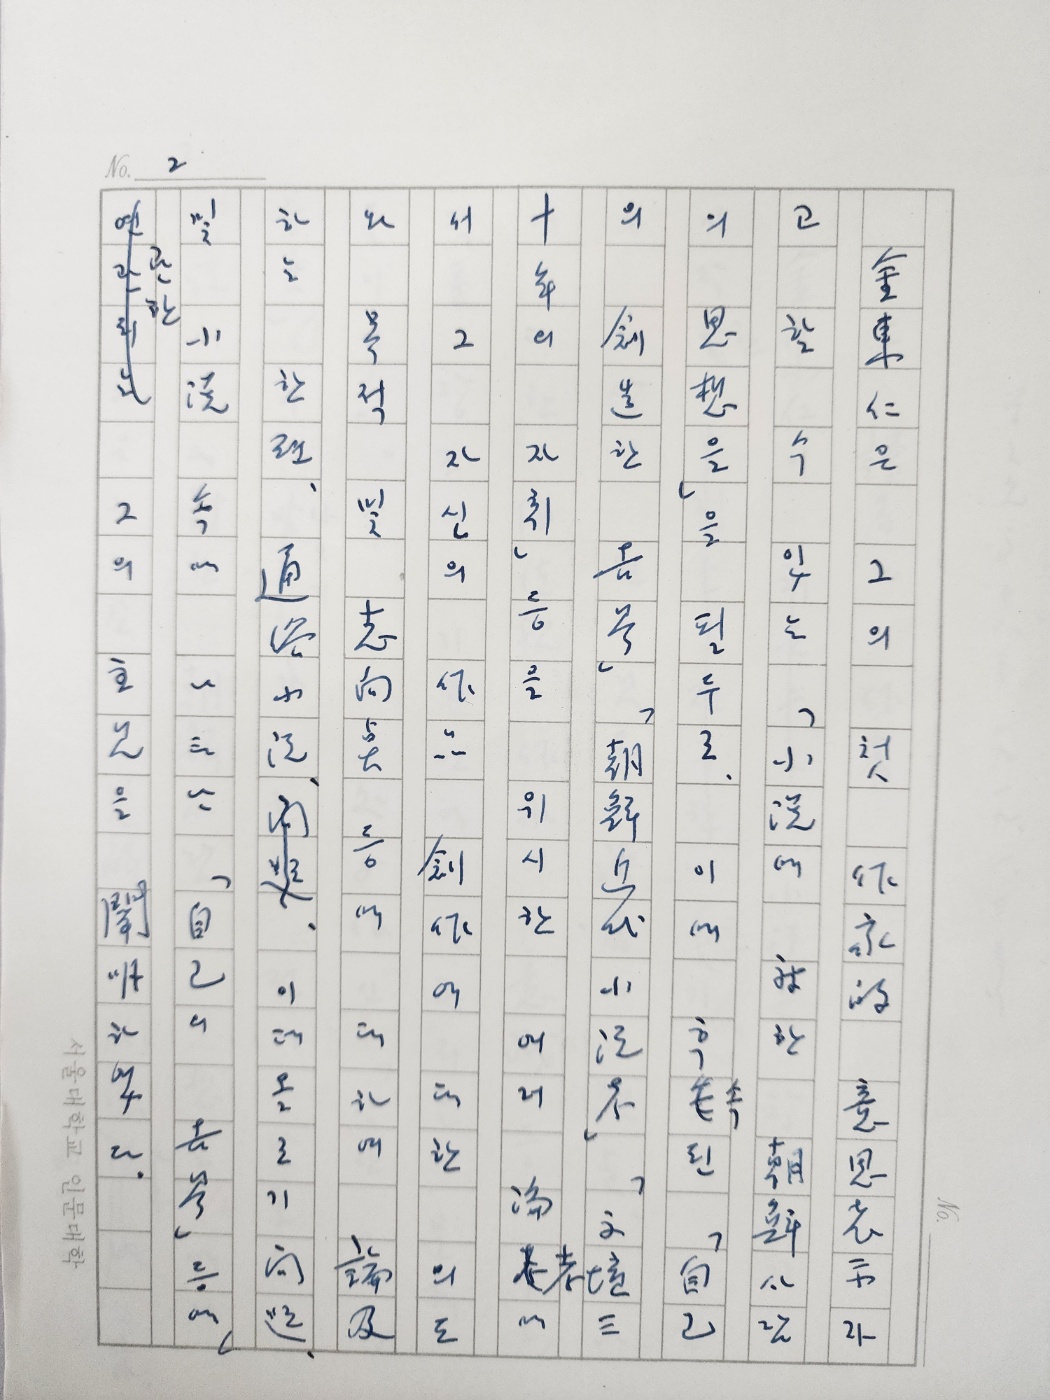 No. 2
金東仁은 그의 첫 作家的 意思表示라
고 할 수 있는 「小說에 對한 朝鮮사람
의 思想을」을 필두로. 이에 후속된 「自己
의 創造한 世界」, 「朝鮮近代小說考」, 「文壇三
十年의 자취」 등을 위시한 여러 論考에
서 그 자신의 作品 創作에 대한 의도
와 목적 및 志向點 등에 대하여 論及
하는 한편, 通俗小說, 이데올로기 問題,
및 小說 속에 나타난 「自己의 云云」 등에
관한 그의 호로은 闡明하였다.
서울대학교 인문대학
No.